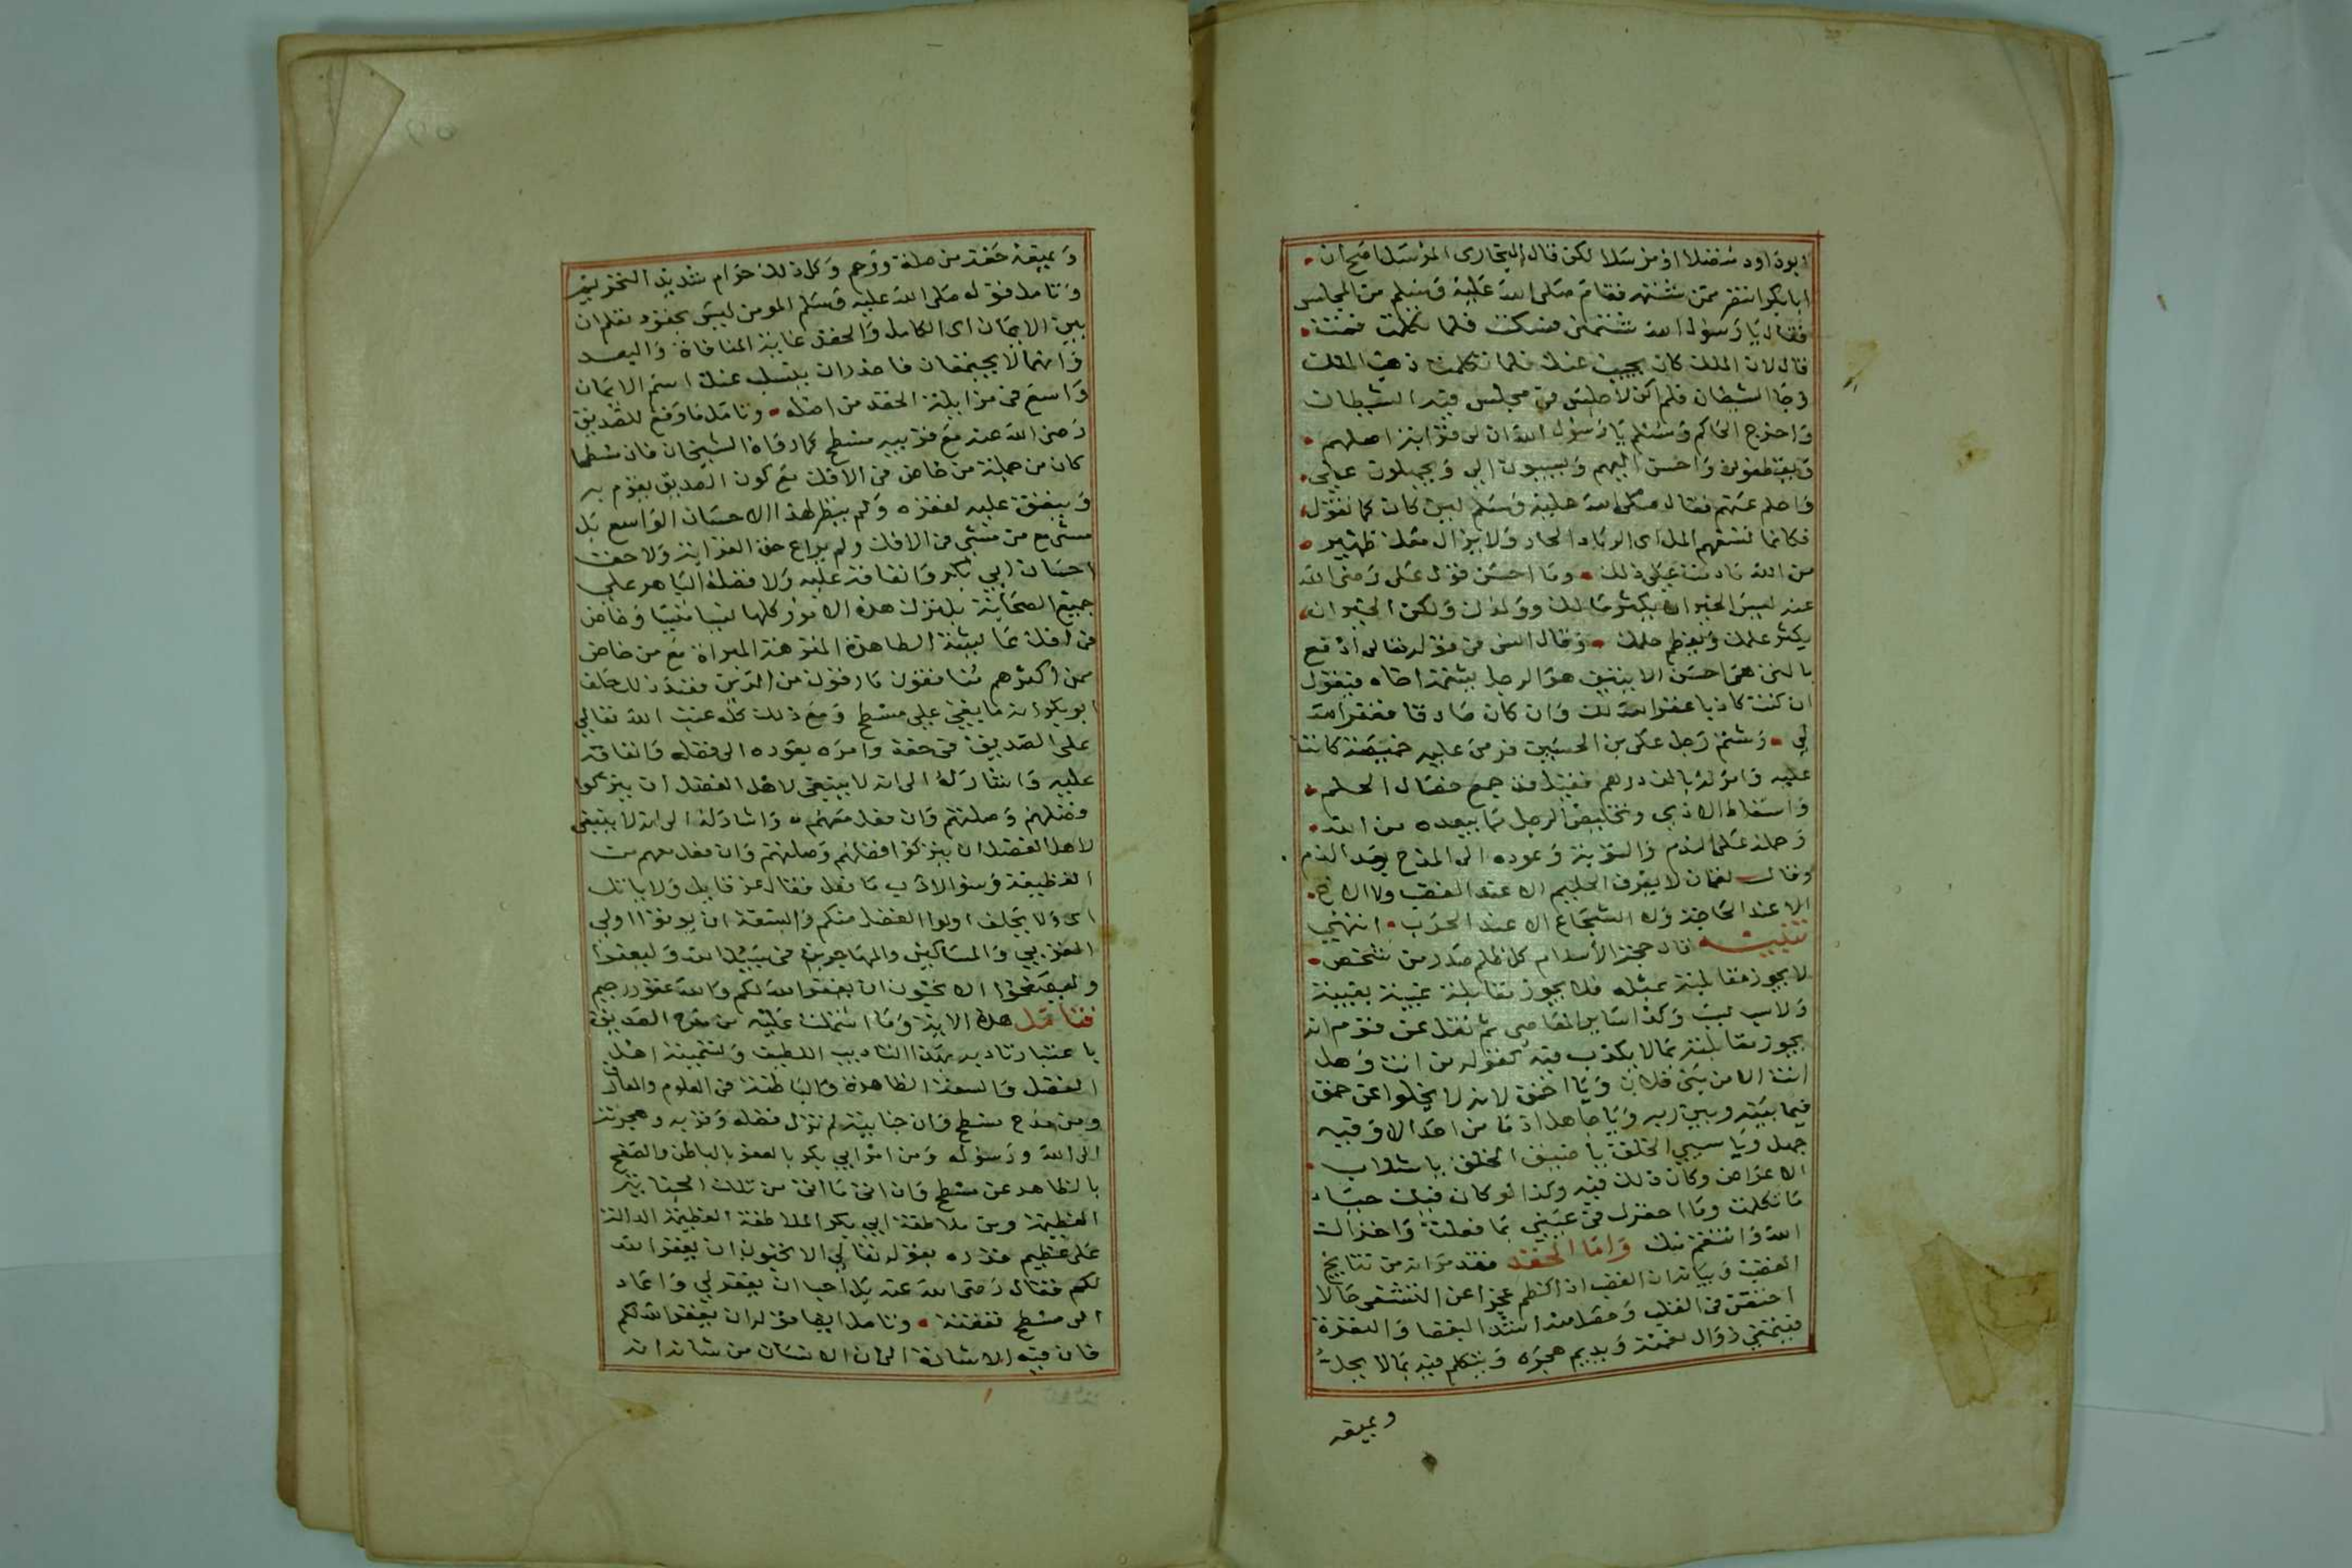 ابو داود متصلا او مرسلا لكن قال البخارى المرسل اصح ان
ابا بكر انتصر ممن شتمه فقام صلى الله عليه وسلم من المجلس
فقال يا رسول الله شتمنى فسكت فلما تكلمت قمت
قال لان الملك كان يجيب عنك فلما تكلمت ذهب الملك
وجا الشيطان فلم اكن لاجلس فى مجلس فيه الشيطان
واخرج الحاكم ومسلم يا رسول الله ان لى قرابة اصلهم
ويقطعونى واحسن اليهم ويسيون الي ويجهلون علي
واحلم عنهم فقال صلى الله عليه وسلم لين كان كما تقول
فكانما تسفهم المل اى الرماد الحار ولا يزال معك ظهير
من الله ما دمت على ذلك وما احسن قول على رضى الله
عنه ليس الخير ان يكثر مالك وولدك ولكن الخير ان
يكثر علمك ويعظم حلمك وقال انس فى قوله تعالى ادفع
بالتى هى احسن الايتين هو الرجل يشتمه اخاه فيقول
ان كنت كاذبا غفر الله لك وان كان صادقا فغفر الله
لى وشتم رجل على بن الحسين فرمى عليه خميصة كانت
عليه وامر له بالف درهم فقيل قد جمع خصال الحلم
واسقاط الاذى وتخليص الرجل مما يبعده من الله
وحمله على الندم والتوبة وعوده الى المدح بعد الذم
وقال لقمان لا يعرف الحليم الا عند الغضب ولا الاخ
الا عند الحاجة ولا الشجاع الا عند الحرب انتهى
تنبيه قال حجة الاسلام كل ظلم صدر من شخص
لا يجوز مقابلته بمثله فلا يجوز مقابلة غيبة بغيبة
ولا سب بسب وكذا ساير المعاصى ثم نقل عن قوم انه
يجوز مقابلته بما لا يكذب فيه كقوله من انت وهل
انت الا من بنى فلان ويا احمق لانه لا يخلوا عن حمق
فيما بينه وبين ربه ويا جاهل اذ ما من احد الا وفيه
جهل ويا سيي الخلق يا ضيق الخلق يا ثلاب
الاعراض وكان ذلك فيه وكذا لو كان فيك حياء
ما تكلمت وما احقرك فى عينى بما فعلت واخزاك
الله وانتقم منك واما الحقد فقد مر انه من نتايج
الغضب وبيانه ان الغضب اذا كظم عجزا عن التشفى حالا
احتقن فى القلب وحصل منه اشد البغضا والنفرة
فيتمنى زوال نعمته ويديم هجره ويتكلم فيه بما لا يحل
ويميعه
ويميعه حقه من صلة ورحم وكل ذلك حرام شديد التحريم
وتامل قوله صلى الله عليه وسلم المومن ليس بحقود تعلم ان
بين الايمان اى الكامل والحقد غاية المنافاة والبعد
وانهما لا يجتمعان فاحذر ان يسلب عنك اسم الايمان
واسع فى مزايلة الحقد من اصله وتامل ما وقع للصديق
رضى الله عنه مع قريبه مسطح كما رواه الشيخان فان مسطحا
كان من جملة من خاض فى الافك مع كون الصديق يقوم به
وينفق عليه لفقره ولم ينظر لهذا الاحسان الواسع بل
مشى مع من مشى فى الافك ولم يراع حق القرابة ولا حق
احسان ابي بكر وانفاقه عليه ولا فضله الباهر على
جميع الصحابة بل نزل هذه الامور كلها نسيا منسيا وخاض
فى افك عايشة الطاهرة المنزهة المبراة مع من خاض
ممن اكثرهم منافقون مارقون من الدين فعند ذلك حلف
ابو بكر انه ما ينفق على مسطح ومع ذلك كله عتب الله تعالي
على الصديق فى حقه وامره بعوده الى فضله وانفاقه
عليه واشار له الى انه لا ينبغى لاهل الفضل ان يتركوا
فضلهم وصلتهم وان فعل معهم واشار له الى انه لا ينبغى
لاهل الفضل ان يتركوا فضلهم وصلتهم وان فعل معهم من
القطيعة وسو الادب ما فعل فقال عز قايل ولا ياتل
اى ولا يحلف اولوا الفضل منكم والسعة ان يوتوا اولى
القربي والمساكين والمهاجرين فى سبيل الله وليعفوا
وليصفحوا الا تحبون ان يغفر الله لكم والله غفور رحيم
فتامل هذه الاية وما اشتملت عليه من مدح الصديق
باعتبار تاديبه بهذا التاديب اللطيف وتسميته اهل
الفضل والسعة الظاهرة والباطنة فى العلوم والمعارف
ومن مدح مسطح وان جنايته لم تزل فضله وقربه وهجرته
الى الله ورسوله ومن امر ابي بكر بالعفو بالباطن والصفح
بالظاهر عن مسطح وان اتى ما اتى من تلك الجناية
العظيمة ومن ملاطفة ابي بكر الملاطفة العظيمة الدالة
على عظيم قدره بقوله تعالى الا تحبون ان يغفر الله
لكم فقال رضى الله عنه بل احب ان يغفر لي واعاد
الى مسطح نفقته وتامل ايضا قوله ان يغفر الله لكم
فان فيه الاشارة الى ان الانسان من شانه انه